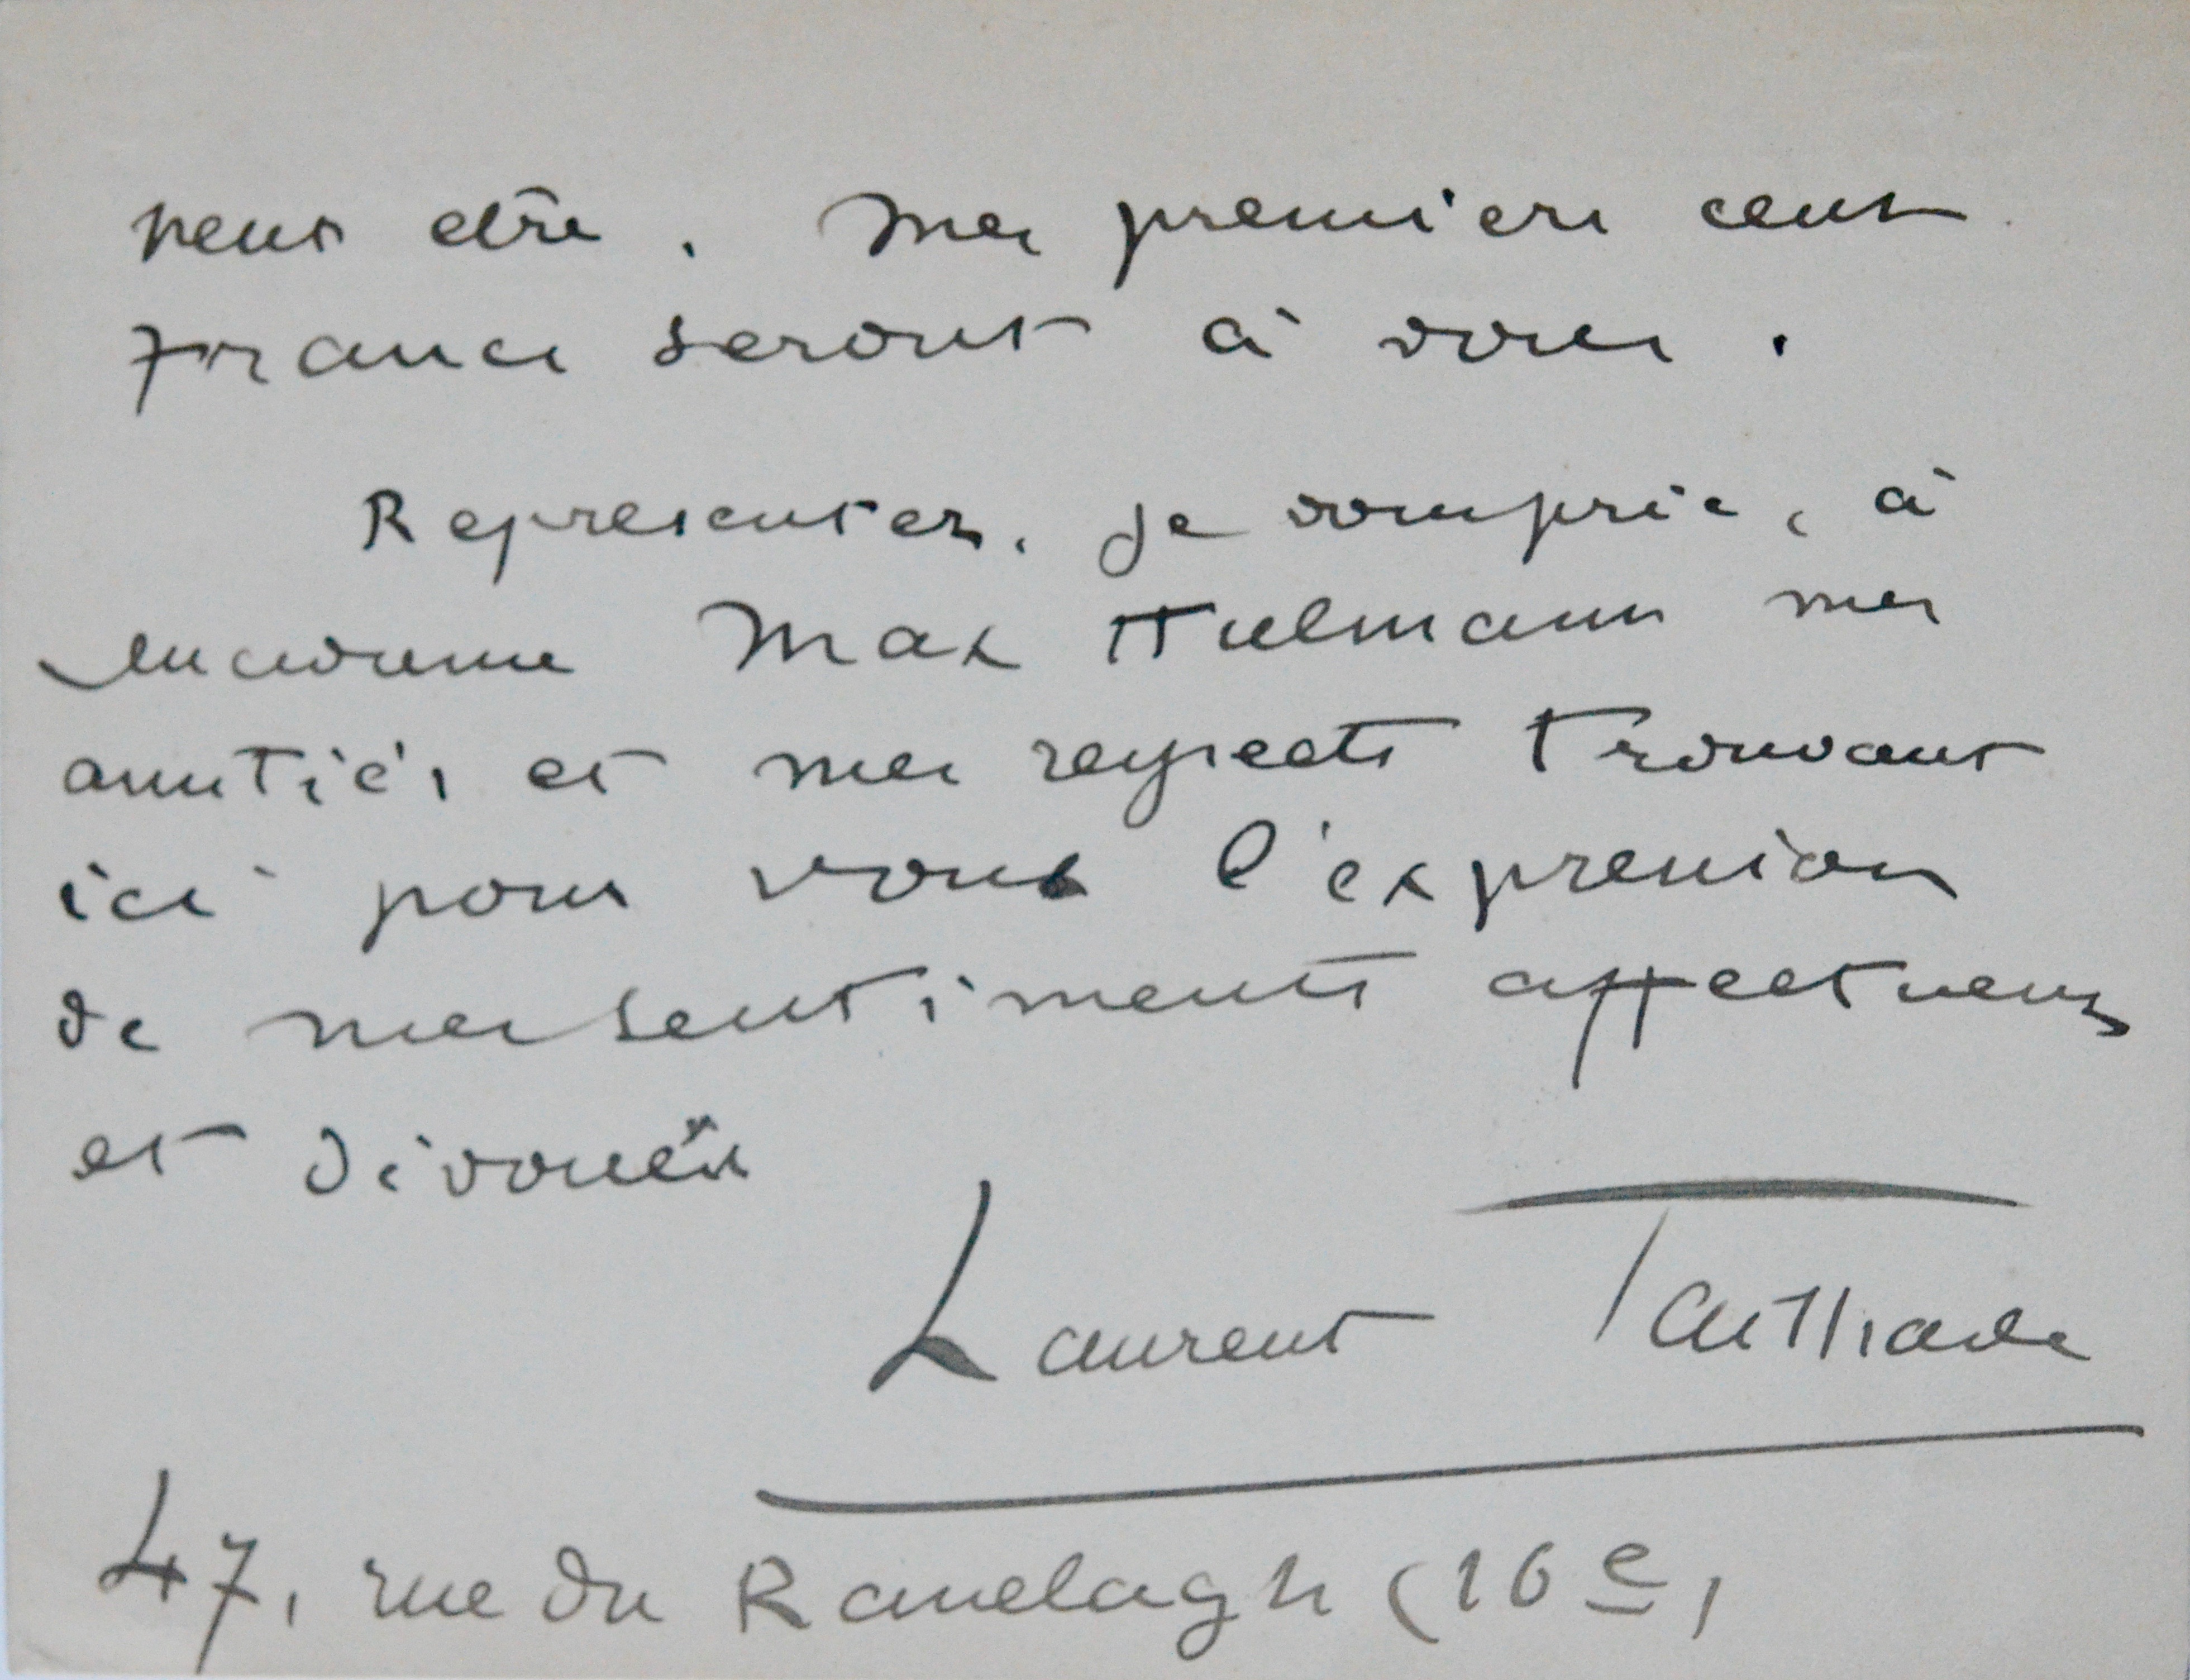 peut être. Mes premiers cent
francs seront à vous.
Representez, je vous prie, à
madame Max Hulmann mes
amitiés et mes respects trouvant
ici pour vous l'expression
de mes sentiments affectueux
et dévoués
Laurent Tailhade
47, rue du Ranelagh (16e)